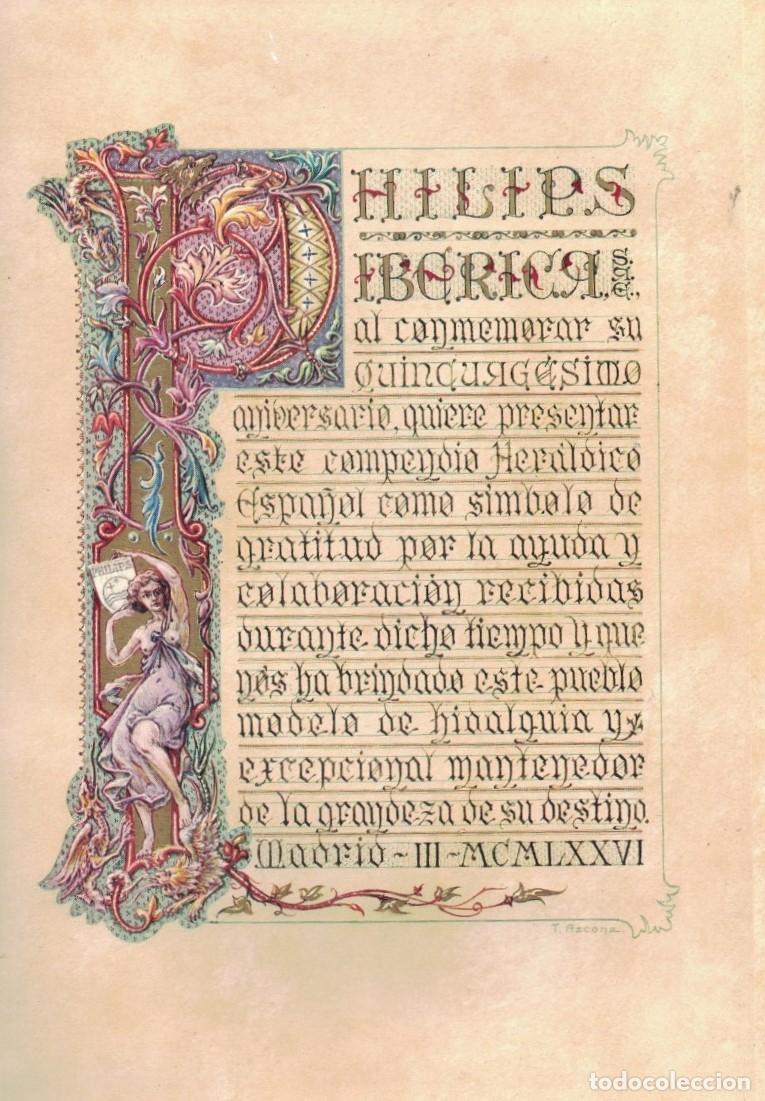 PHILIPS
IBERICA, S.A.E.,
al conmemorar su
QUINCUAGESIMO
aniversario, quiere presentar
este compendio Heráldico
Español como simbolo de
gratitud por la ayuda y
colaboración recibidas
durante dicho tiempo y que
nos ha brindado este pueblo
modelo de hidalguia y
excepcional mantenedor
de la grandeza de su destino.
Madrid - III - MCMLXXVI
PHILIPS
T. Azcona
todocoleccion